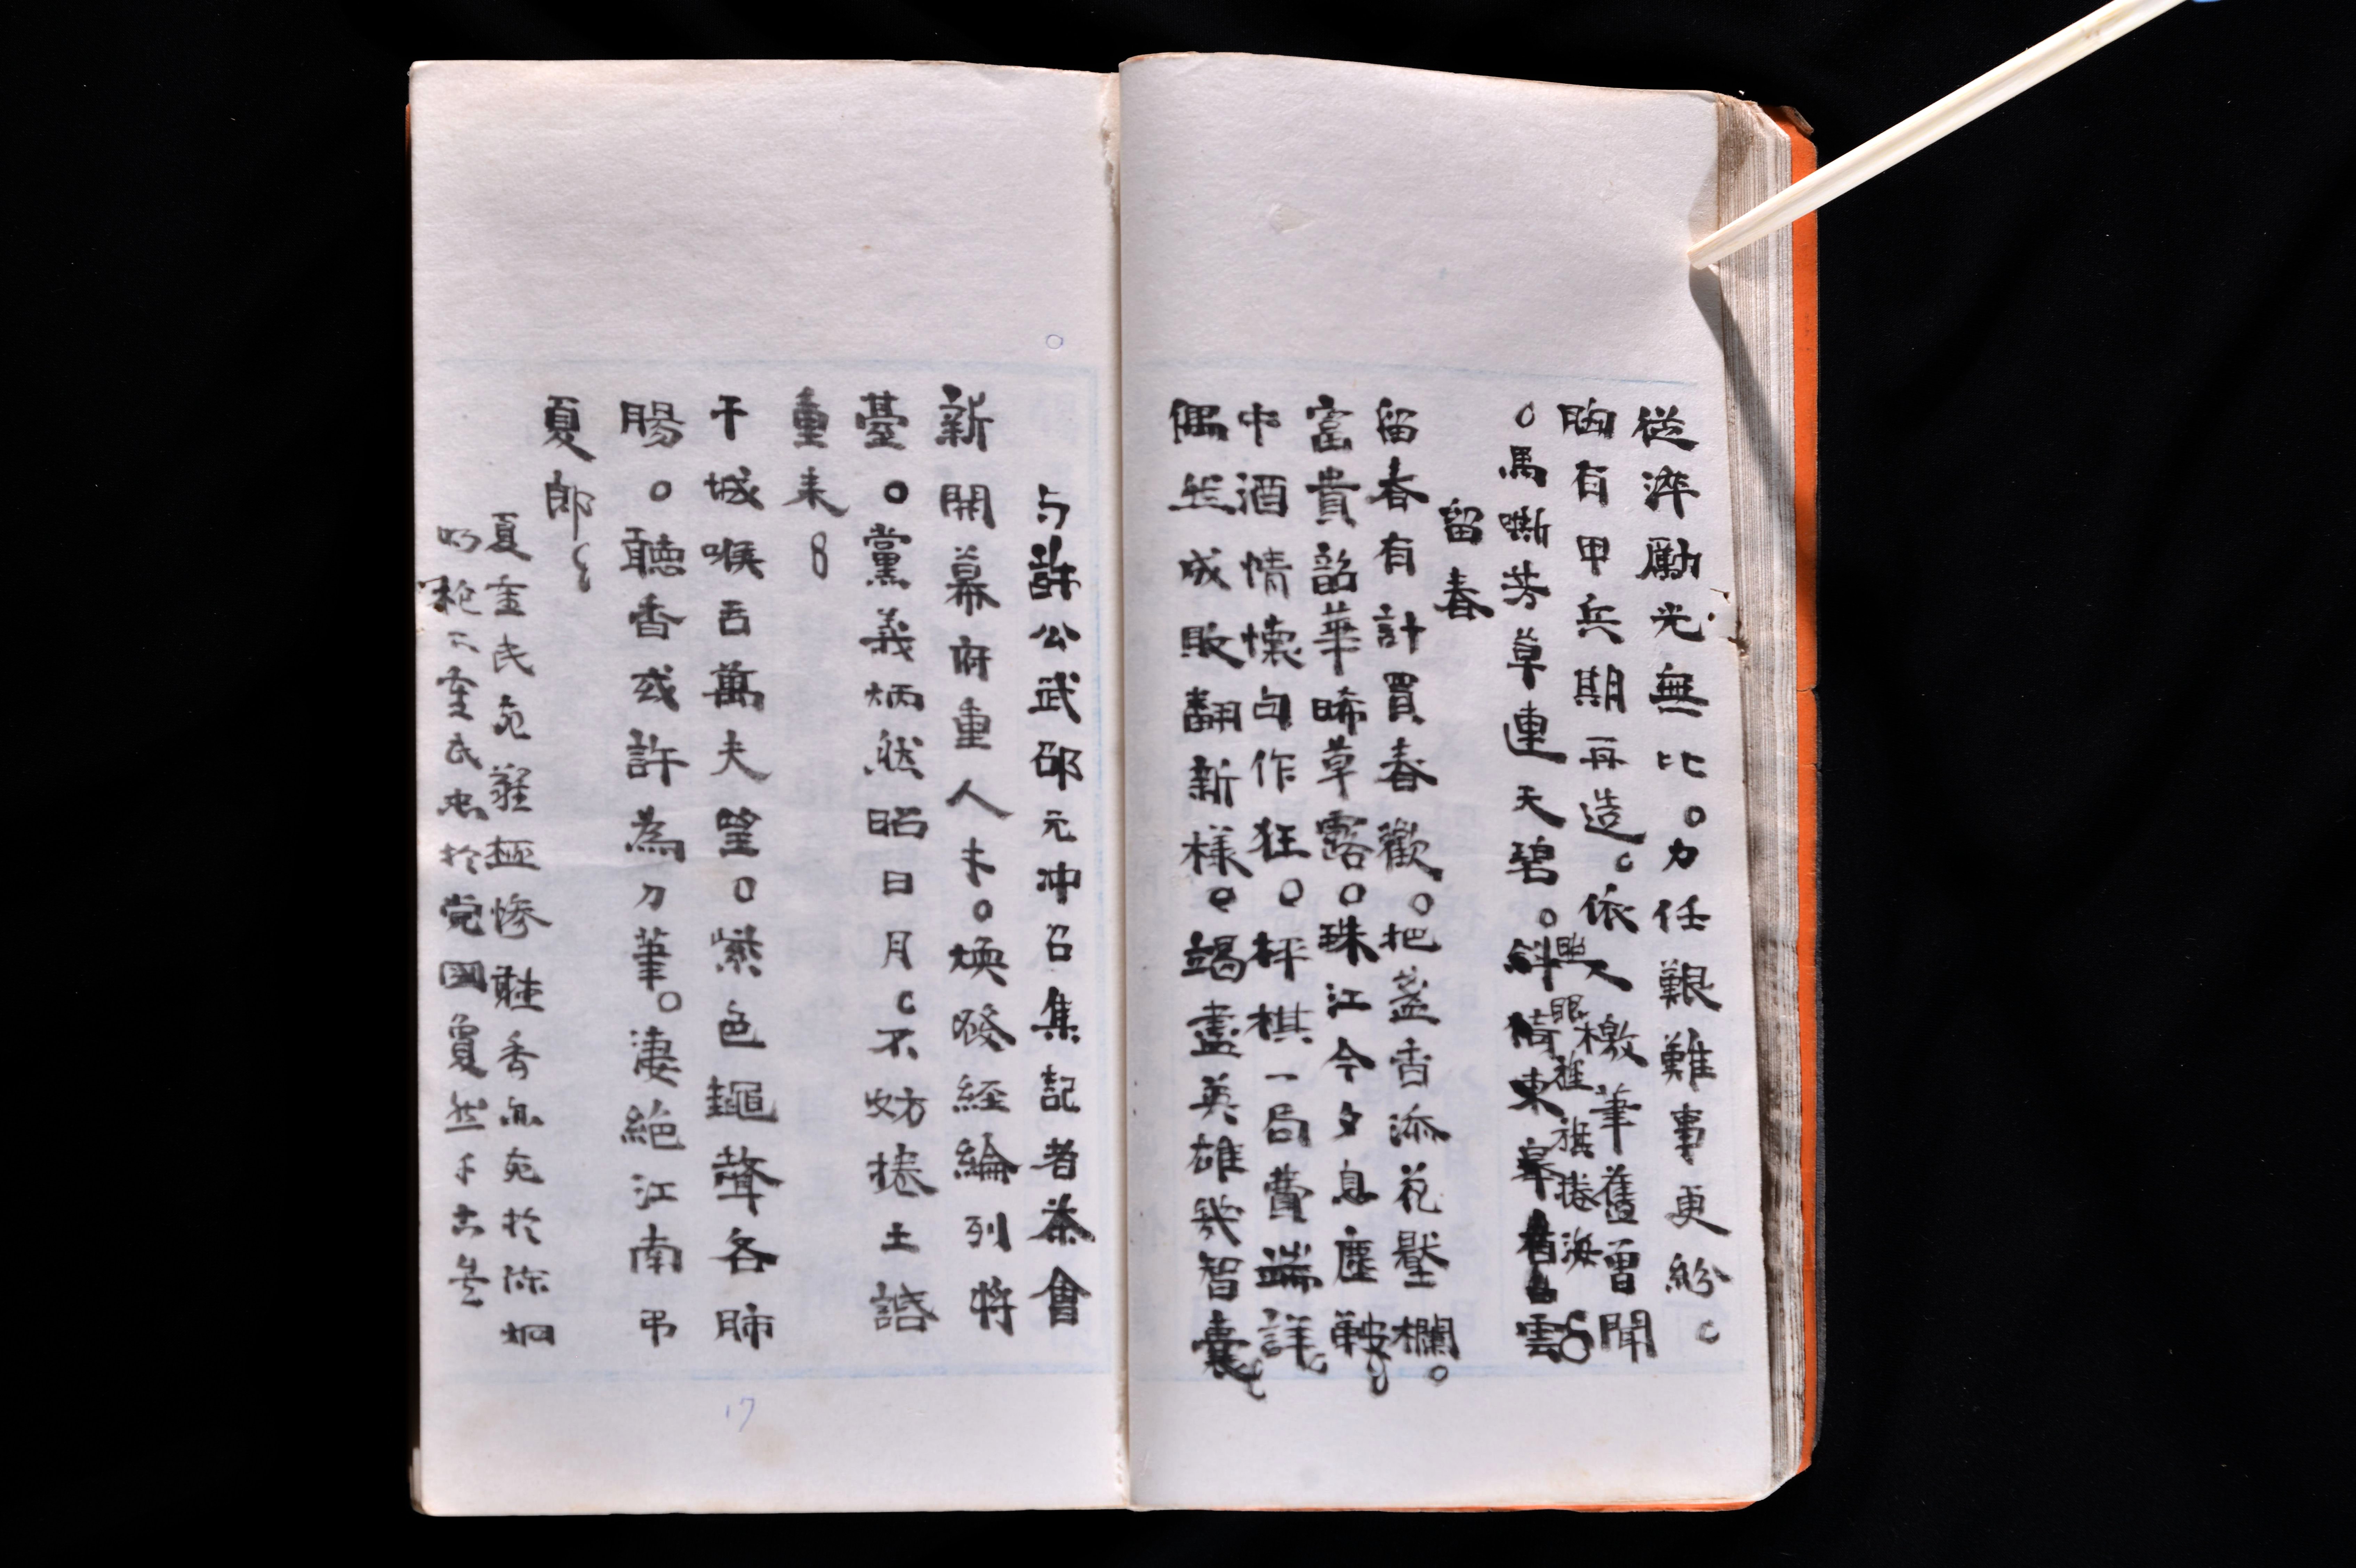 從淬勵光無比。力任艱難事更紛。
胸有甲兵期再造。依人檄筆舊曾聞
照眼旌旗捲海
。馬嘶芳草連天碧。斜倚東皋看雲
留春
留春有計買春歡。把盞香添花壓欄。
富貴韶華晞草露。珠江今夕息塵鞍。
中酒情懷句作狂。枰棋一局費端詳。
偶然成敗翻新樣。竭盡英雄幾智囊。
与許公武邵元冲召集記者茶會
新開幕府重人才。煥發經綸列將
臺。黨義炳然昭日月。不妨捲土話
重来。
干城喉舌萬夫望。紫色繩聲各肺
腸。聽香或許為刀筆。淒絕江南弔
夏郎。
夏重民死難極慘聽香亦死於陳炯
明槍下重民忠於党國夐然千古矣
17